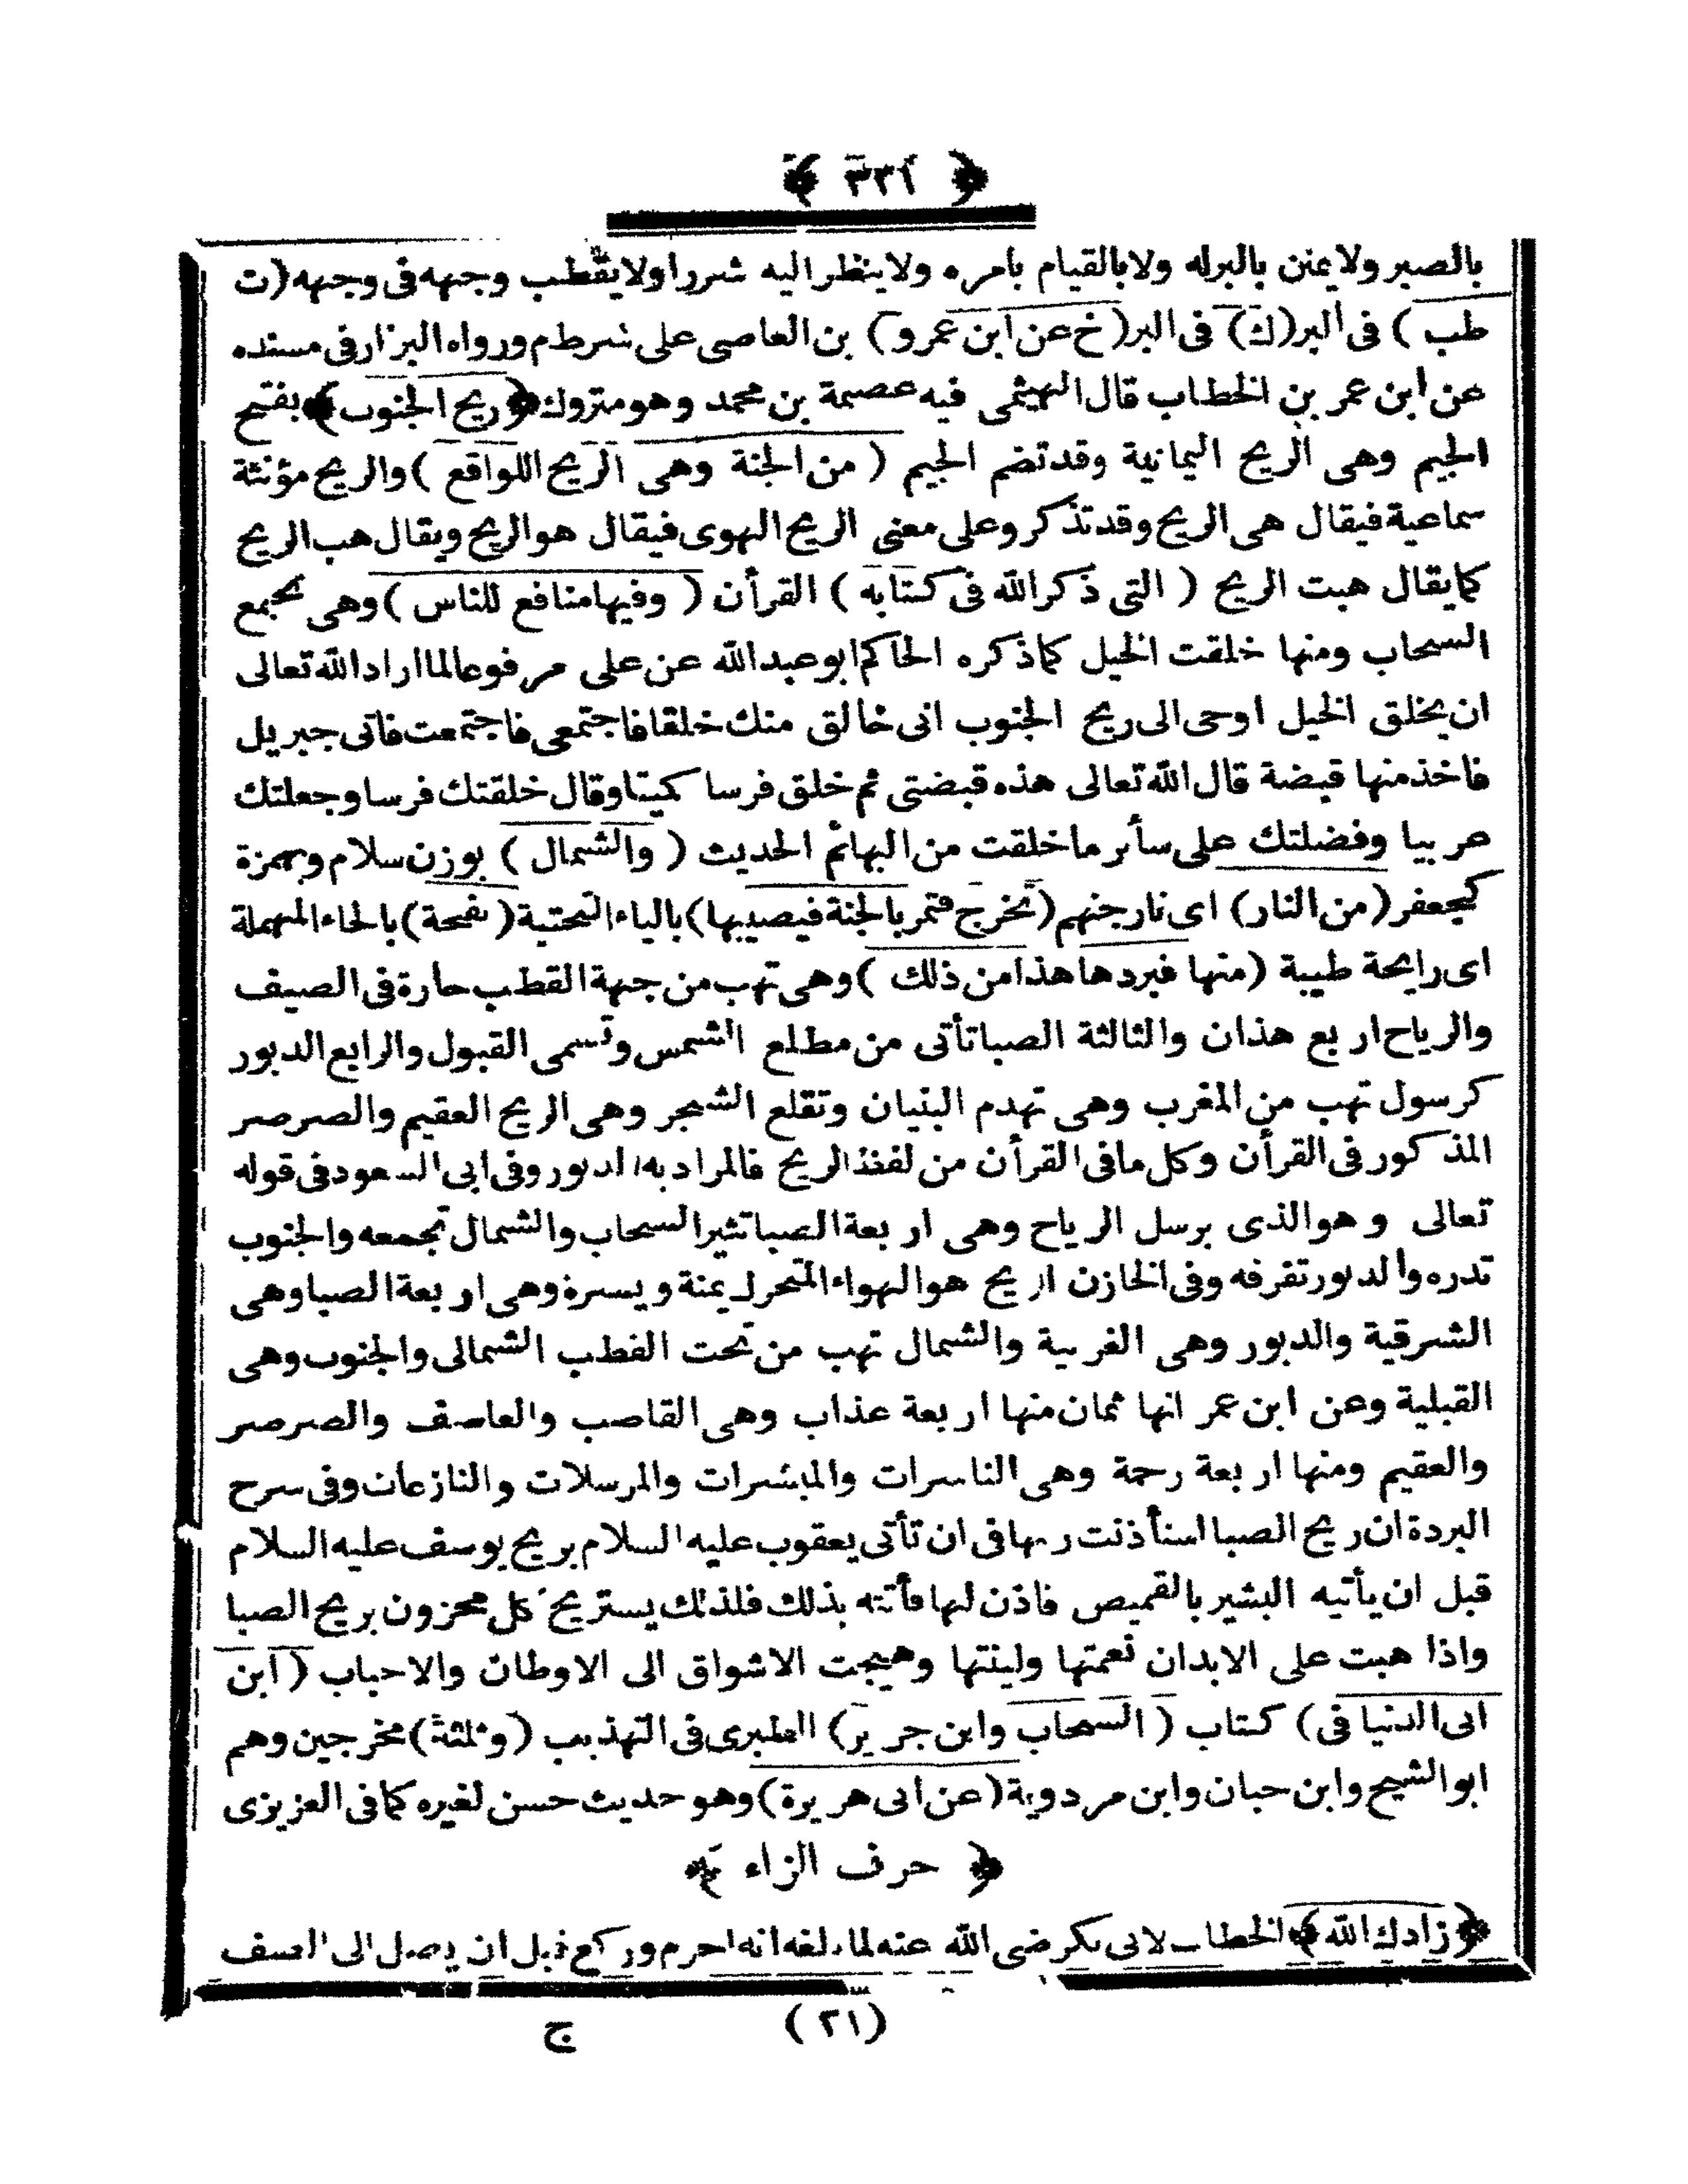 ﴿ ٣٢١ ﴾
بالصبر ولا يمنن بالبر له ولا بالقيام بامره ولا ينظر اليه شررا ولا يقطب وجهه فى وجهه (ت
طب) فى البر (ك) فى البر (خ عن ابن عمرو) بن العاصى على شرط م ورواه البزار فى مسنده
عن ابن عمر بن الخطاب قال الهيثمى فيه عصمة بن محمد وهو متروك ﴿ريح الجنوب﴾ بفتح
الجيم وهى الريح اليمانية وقد تضم الجيم (من الجنة وهى الريح اللواقع) والريح مؤنثة
سماعية فيقال هى الريح وقد تذكر وعلى معنى الريح الهوى فيقال هو الريح ويقال هب الريح
كما يقال هبت الريح (التى ذكر الله فى كتابه) القرأن (وفيها منافع للناس) وهى تجمع
السحاب ومنها خلقت الخيل كما ذكره الحاكم ابو عبد الله عن على مرفوعا لما اراد الله تعالى
ان يخلق الخيل اوحى الى ريح الجنوب انى خالق منك خلقا فاجتمعى فاجتمعت فاتى جبريل
فاخذ منها قبضة قال الله تعالى هذه قبضتى ثم خلق فرسا كميتا وقال خلقتك فرسا وجعلتك
عربيا وفضلتك على سأر ما خلقت من البهائم الحديث (والشمال) بوزن سلام وبهمزة
كجعفر (من النار) اى نار جهنم (تخرج فتمر بالجنة فيصيبها) بالياء التحتية (نفحة) بالحاء المهملة
اى رايحة طيبة (منها فبردها هذا من ذلك) وهى تهب من جهة القطب حارة فى الصيف
والرياح اربع هذان والثالثة الصبا تأتى من مطلع الشمس وتسمى القبول والرابع الدبور
كرسول تهب من المغرب وهى تهدم البنيان وتقلع الشجر وهى الريح العقيم والصرصر
المذكور فى القرأن وكل ما فى القرأن من لفظ الريح فالمراد به الدبور وفى ابى السعود فى قوله
تعالى وهو الذى يرسل الرياح وهى اربعة الصبا تثير السحاب والشمال تجمعه والجنوب
تدره والدبور تفرقه وفى الخازن الريح هو الهواء المتحرك يمنة ويسرة وهى اربعة الصبا وهى
الشرقية والدبور وهى الغربية والشمال تهب من تحت القطب الشمالى والجنوب وهى
القبلية وعن ابن عمر انها ثمان منها اربعة عذاب وهى القاصب والعاصف والصرصر
والعقيم ومنها اربعة رحمة وهى الناسرات والمبشرات والمرسلات والنازعات وفى سرح
البردة ان ريح الصبا استأذنت ربها فى ان تأتى يعقوب عليه السلام بريح يوسف عليه السلام
قبل ان يأتيه البشير بالقميص فاذن لها فأتته بذلك فلذلك يستريح كل محزون بريح الصبا
واذا هبت على الابدان نعمتها ولينتها وهيجت الاشواق الى الاوطان والاحباب (ابن
ابى الدنيا فى) كتاب (السحاب وابن جرير) الطبرى فى التهذيب (وثلثة) مخرجين وهم
ابو الشيخ وابن حبان وابن مردوية (عن ابى هريرة) وهو حديث حسن لغيره كما فى العزيزى
﴿ حرف الزاء ﴾
﴿زادك الله﴾ الخطاب لابى بكر رضى الله عنه لما بلغه انه احرم وركع قبل ان يصل الى الصف
(٢١) ج